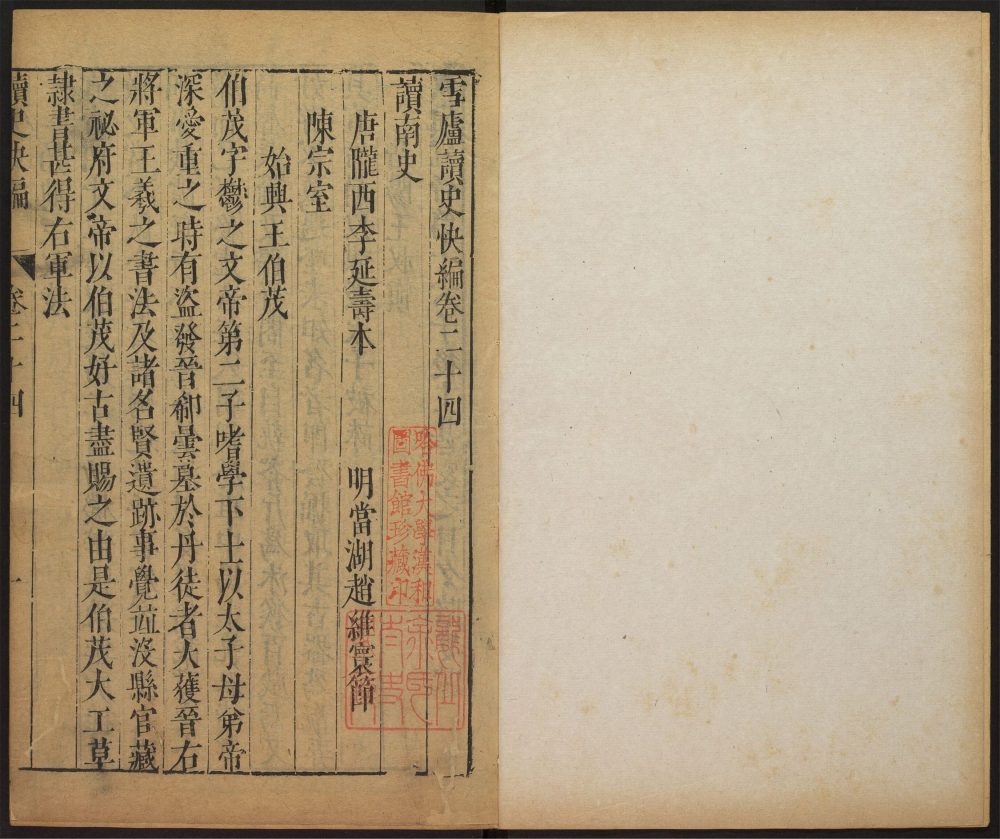 雪廬讀史快編卷二十四
讀南史
唐隴西李延壽本　明當湖趙維寰節
陳宗室
始興王伯茂
伯茂字鬱之文帝第二子嗜學下士以太子母弟帝
深愛重之時有盜發晉郗曇墓於丹徒者大獲晉右
將軍王羲之書法及諸名賢遺跡事覺並沒縣官藏
之祕府文帝以伯茂好古盡賜之由是伯茂大工草
隷書甚得右軍法
讀史快編　卷二十四　一
哈佛大學漢和
圖書館珍藏印